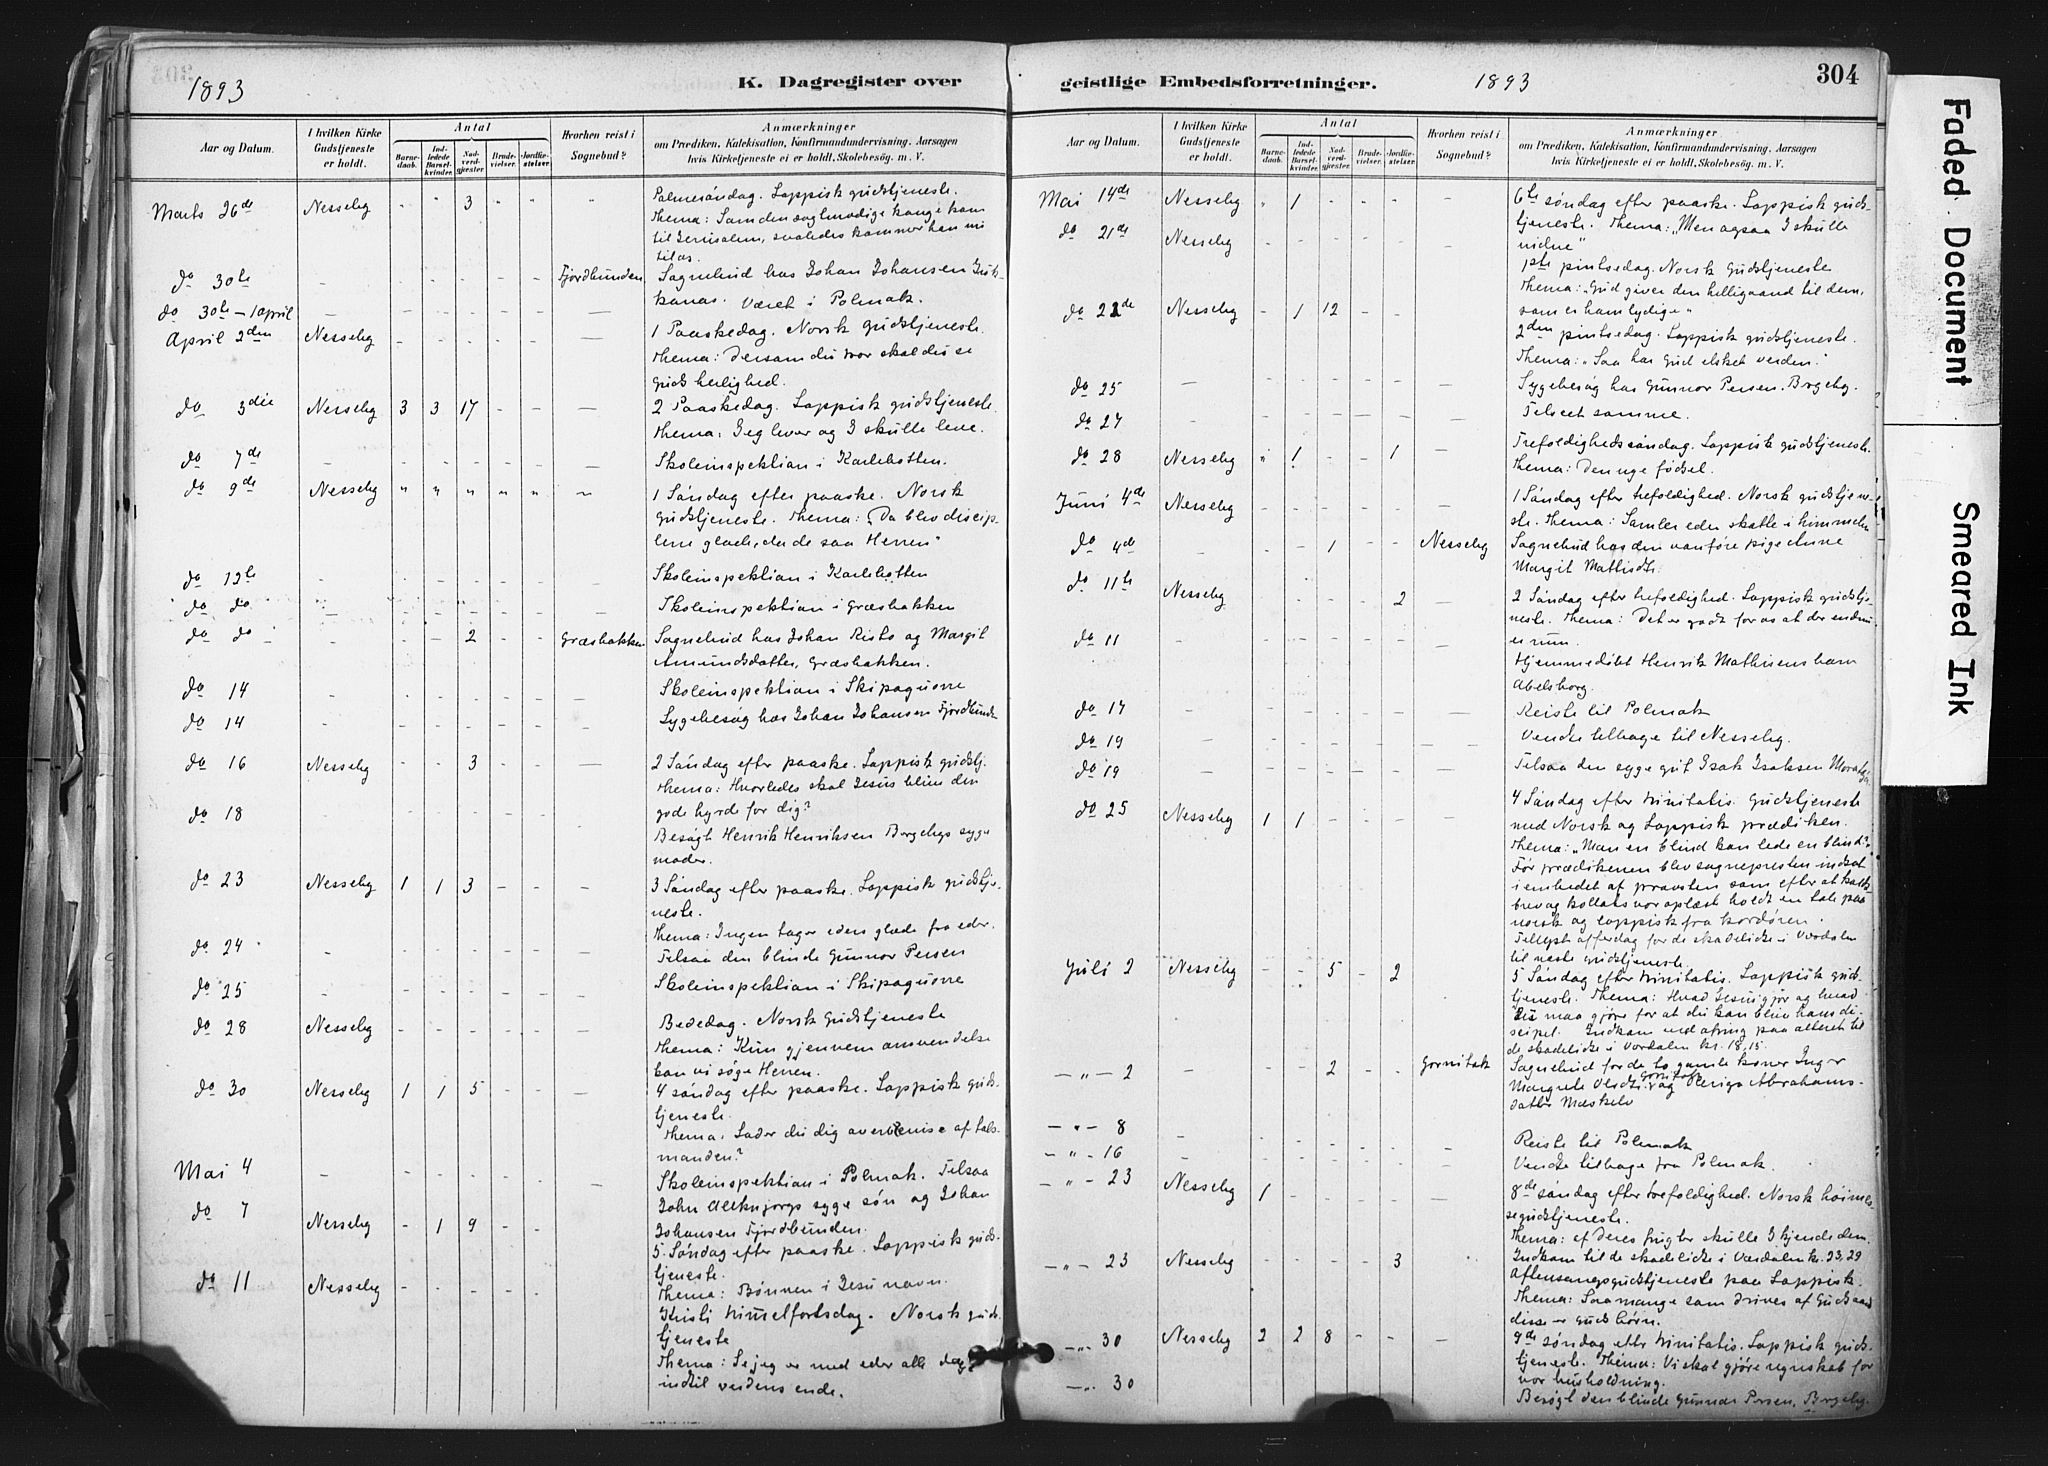 1893
K. Dagregister over
Aar og Datum.
I hvilken Kirke Gudstjeneste er holdt.
Antal
Barnedaab.
Indledede Barselkvinder.
Nadverdgjæster.
Brudevielser.
Jordfæstelser.
Hvorhen reist i Sognebud?
Anmærkninger
om Prædiken, Katekisation, Konfirmandundervisning. Aarsagen
hvis Kirketjeneste ei er holdt. Skolebesög. m. V.
Marts 26de Nesseby " " 3 " " " Palmesöndag. Lappisk gudstjeneste.
Thema: Som den sagtmodige konge kom
til Jerusalem, saaledes kommer han nu
til os.
do 30te - - - - - - Fjordbunden Sognebud hos Johan Johansen
Været i Polmak.
do 30te - 1 april
April 2den Nesseby - - - - - - 1 Paaskedag. Norsk gudstjeneste.
Thema: Dersom du tror skal du se
Guds herlighed.
do 3die Nesseby 3 3 17 - - - 2 Paaskedag. Lappisk gudstjeneste.
Thema: Jeg lever og I skulle leve.
do 7de - - - - - - - Skoleinspektion i Karlebotten.
do 9de Nesseby " " " " " " 1 Söndag efter paaske. Norsk
Gudstjeneste. Thema: "Da blev discip-
lene glade, da de saa Herren"
do 13te - - - - - - Skoleinspektion i Karlebotten
do do - - - - - - - Skoleinspektion i Græsbakken
do do - - - 2 - - Græsbakken Sognebud hos Johan Risto og Margit
Amundsdatter, Græsbakken.
do 14 - - - - - - - Skoleinspektion i Skipagurre
do 14 - - - - - - - Sygebesög hos Johan Johansen Fjordbunden
do 16 Nesseby - - 3 - - - 2 Söndag efter paaske. Lappisk gudstj.
Thema: Hvorledes skal Jesus blive den
gode hyrde for dig?
do 18 - - - - - - - Besögt Henrik Henriksen Bergebys syge
moder.
do 23 Nesseby 1 1 3 - - - 3 Söndag efter paaske. Lappisk gudstje-
neste.
Thema: Ingen tager eders glæde fra eder.
do 24 - - - - - - - Tilsaa den blinde Gunnor Persen
do 25 - - - - - - - Skoleinspektion i Skipagurre
do 28 Nesseby - - - - - - Bededag. Norsk Gudstjeneste
Thema: Kun gjennem omvendelse
kan vi söge Herren.
do 30 Nesseby 1 1 5 - - - 4 söndag efter paaske. Lappisk guds-
tjeneste.
Thema: Lader du dig overbevise af tals-
manden?
Mai 4 - - - - - - - Skoleinspektion i Polmak. Tilsaa
John syge sön og Johan
Johansen Fjordbunden.
do 7 Nesseby - 1 9 - - 5. Söndag efter paaske. Lappisk guds-
tjeneste.
Thema: Bönnen i Jesu navn.
do 11 Nesseby - - - - - - Kristi himmelfartsdag. Norsk guds-
tjeneste
Thema: Se jeg er med eder alle dage
indtil verdens ende.
geistlige Embedsforretninger.
1893
304
Aar og Datum.
I hvilken Kirke Gudstjeneste er holdt.
Antal
Barnedaab.
Indledede Barselkvinder.
Nadverdgjæster.
Brudevielser.
Jordfæstelser.
Hvorhen reist i Sognebud?
Anmærkninger
om Prædiken, Katekisation, Konfirmandundervisning. Aarsagen
hvis Kirketjeneste ei er holdt. Skolebesög. m. V.
Mai 14de Nesseby " 1 - - - - 6te söndag efter paaske. Lappisk guds-
tjeneste. Thema: "Men ogsaa I skulle
vidne"
do 21de Nesseby - - - - - - 1ste pintsedag. Norsk Gudstjeneste
Thema: "Gud giver den helligaand til dem,
som er ham lydige"
do 22de Nesseby - 1 12 - - 2den pintsedag. Lappisk gudstjeneste.
Thema: "Saa har Gud elsket verden."
do 25 - - - - - - - Sygebesög hos Gunnor Persen. Bergeby.
do 27 - - - - - - Tilseet samme.
do 28 Nesseby " 1 - - 1 - Trefoldighedssöndag. Lappisk gudstjeneste.
Thema: Den nye födsel.
Juni 4de Nesseby - - - - - - 1 Söndag efter trefoldighed. Norsk gudstjene-
ste. Thema: Samler eder skatte i himmelen
do 4de - - - 1 - - Nesseby Sognebud hos den vanföre pige Anne
Margit Mathisdtr.
do 11te Nesseby - - - - 2 - 2 Söndag efter trefoldighed. Lappisk gudstje-
neste. Thema: Det er godt for os at der endnu
er rum.
do 11 - - - - - - - Hjemmedöbt Henrik Mathisens barn
Abelsborg.
do 17 - - - - - - - Reiste til Polmak
do 19 - - - - - - - Vendte tilbage til Nesseby.
do 19 - - - - - - - Tilsaa den syge gut Isak Isaksen
do 25 Nesseby 1 1 - - - - 4 Söndag efter trinitatis. Gudstjeneste
med Norsk og Lappisk prædiken.
Thema: "Man en blind kan lede en blind?"
Før prædikenen blev sognepresten indsat
i embedet af provsten som efter at kalds-
brev og kollats var oplæst holdt en tale paa
norsk og lappisk fra kordören.
Tillyst offerdag for de skadelidte i Værdalen
til næste gudstjeneste.
Juli 2 Nesseby - - 5 - 2 5 Söndag efter trinitatis. Lappisk guds-
tjeneste. Thema: Hvad Jesus gjör og hvad
du maa gjöre for at du kan blive hans di-
scipel. Indkom ved ofring paa alteret til
de skadelidte i Værdalen kr. 18,15.
— " — 2 - - 2 - - Gornitak Sognebud for de to gamle koner Inger
Margrete Gornitak og Abrahams-
datter Mæskelv
— " — 8 - - - - - - - Reiste til Polmak
— " — 16 - - - - - - - Vendte tilbage fra Polmak.
— " — 23 Nesseby 1 - - - - - 8de söndag efter trefoldighed. Norsk höimes-
segudstjeneste.
Thema: af deres frugter skulle I kjende dem.
Indkom til de skadelidte i Værdalen kr. 23,29
— " — 23 Nesseby - - - - 3 Aftensangsgudstjeneste paa Lappisk.
Thema: Saa mange som drives af Guds aand
disse er Guds börn.
— " — 30 Nesseby 2 2 8 - - - 9de söndag efter trinitatis. Lappisk guds-
tjeneste. Thema: Vi skal gjöre regnskab for
vor husholdning.
— " — 30 Besögt den blinde Gunnor Persen, Bergeby.
Faded Document
Smeared Ink